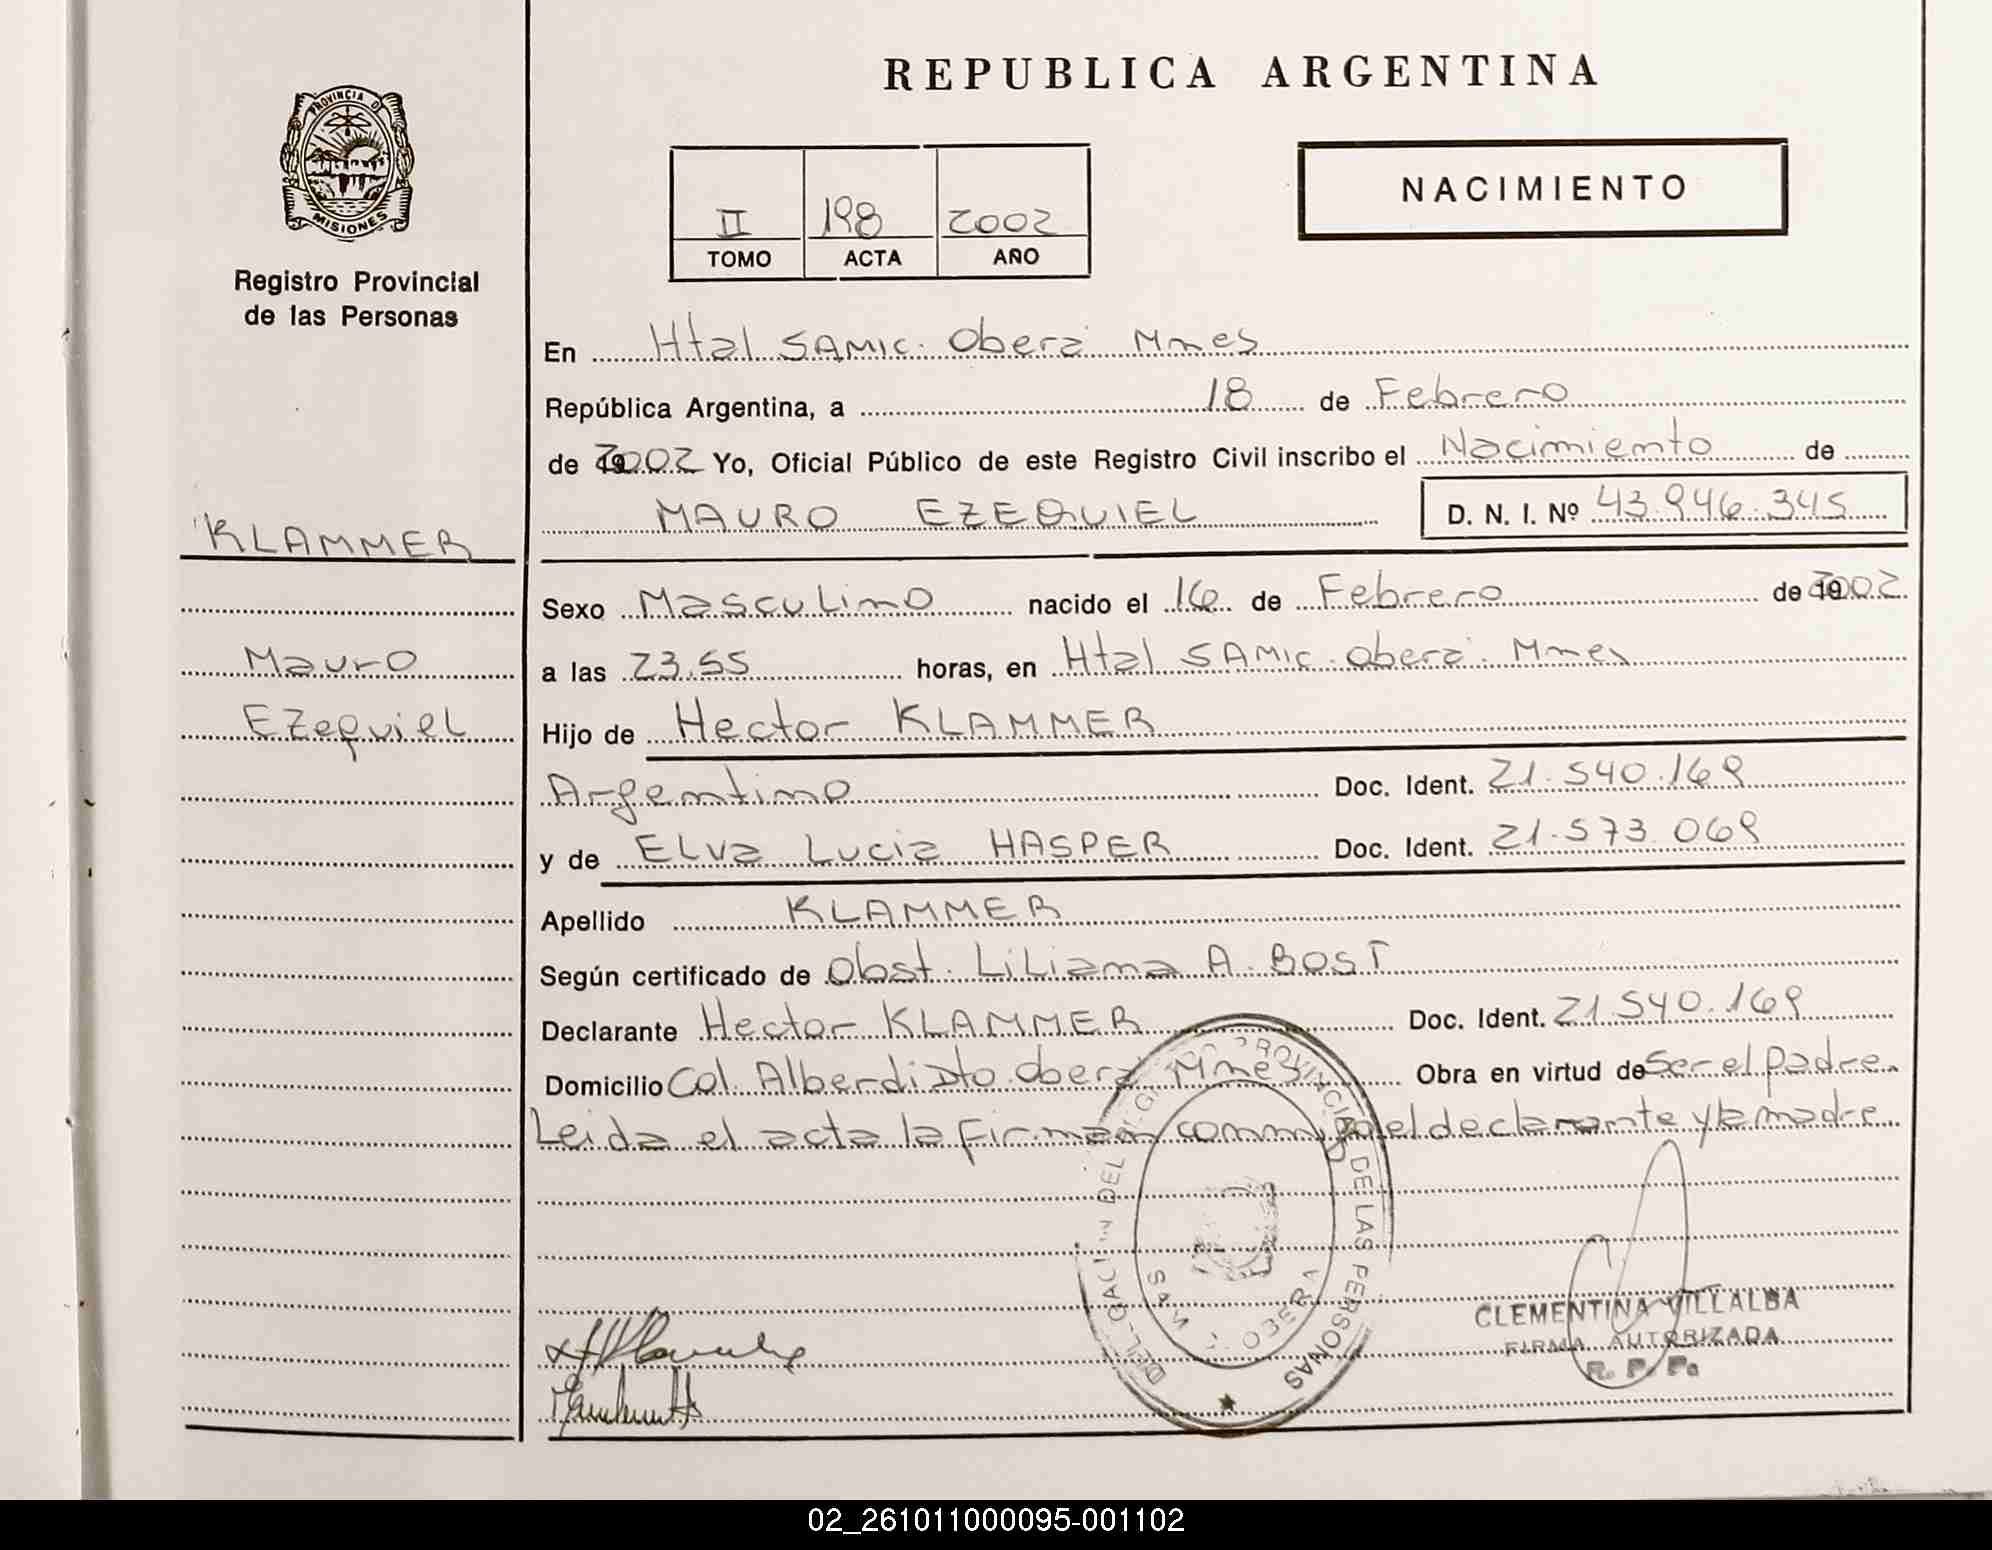 REPUBLICA ARGENTINA
PROVINCIA D
MISIONES
Registro Provincial
de las Personas
II 198 2002
TOMO ACTA AÑO
NACIMIENTO
En Htal SAMIC. Oberá Mnes
República Argentina, a 18 de Febrero
de 2002 Yo, Oficial Público de este Registro Civil inscribo el Nacimiento de
MAURO EZEQUIEL D. N. I. Nº 43.946.345
KLAMMER
Mauro
Ezequiel
Sexo Masculino nacido el 16 de Febrero de 2002
a las 23.55 horas, en Htal SAMIC. Oberá. Mnes
Hijo de Hector KLAMMER
Argentino Doc. Ident. 21.540.169
y de ELva Lucia HASPER Doc. Ident. 21.573.069
Apellido KLAMMER
Según certificado de Obst. LiLiana A. BOST
Declarante Hector KLAMMER Doc. Ident. 21.540.169
Domicilio Col. Alberdi Dto. Oberá Mnes Obra en virtud de Ser el padre.
Leida el acta la firman conmigo el declarante y la madre
DE LAS PERSONAS
OBERA
CLEMENTINA VILLALBA
FIRMA AUTORIZADA
R. P. P.
02_261011000095-001102